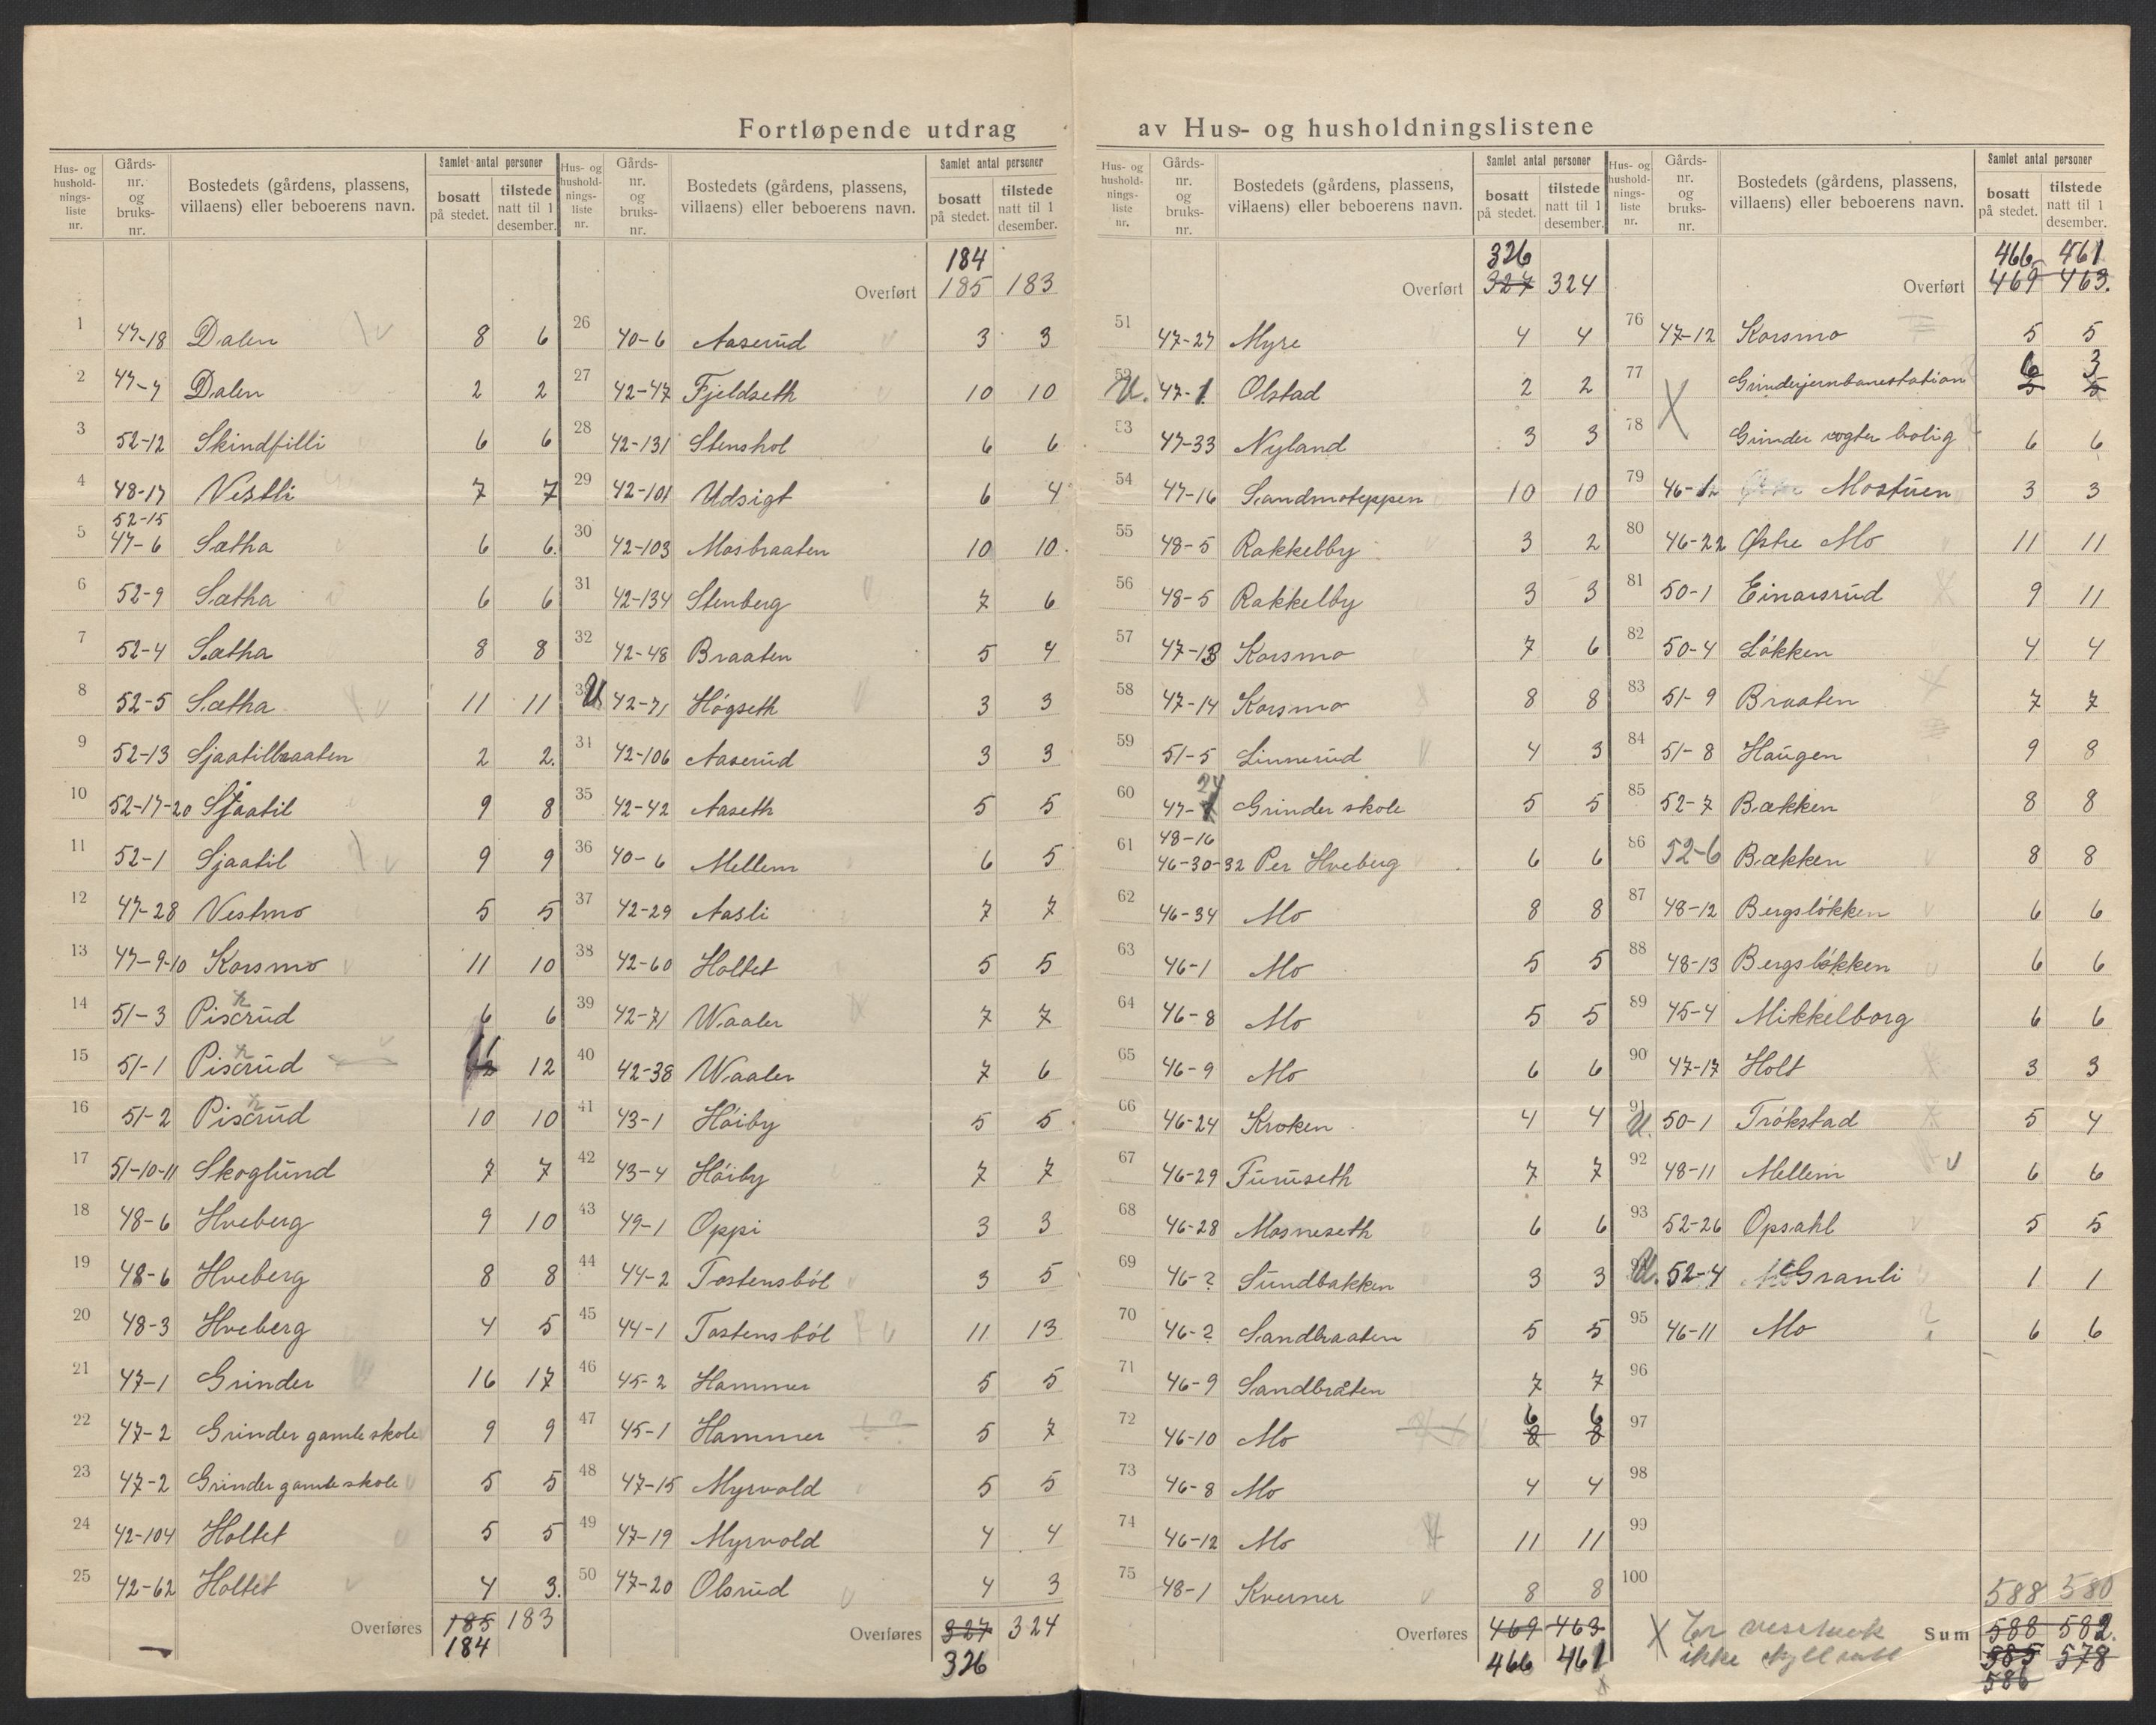 Fortløpende utdrag av Hus- og husholdningslistene
Hus- og hushold-nings-liste nr. Gårds-nr. og bruks-nr. Bostedets (gårdens, plassens, villaens) eller beboerens navn. Samlet antal personer bosatt på stedet. tilstede natt til 1 desember.
1 47-18 Dalen 8 6
2 47-7 Dalen 2 2
3 52-12 Skindfilli 6 6
4 48-17 Vestli 7 7
5 52-15 47-6 Sætha 6 6.
6 52-9 Sætha 6 6
7 52-4 Sætha 8 8
8 52-5 Sætha 11 11
9 52-13 Sjaatilbraaten 2 2.
10 52-17-20 Sjaatil 9 8
11 52-1 Sjaatil 9 9
12 47-28 Vestmo 5 5
13 47-9-10 Korsmo 11 10
14 51-3 Piscrud 6 6
15 51-1 Piscrud 12
16 51-2 Piscrud 10 10
17 51-10-11 Skoglund 7 7
18 48-6 Hveberg 9 10
19 48-6 Hveberg 8 8
20 48-3 Hveberg 4 5
21 47-1 Grinder 16 17
22 47-2 Grinder gamle skole 9 9
23 47-2 Grinder gamle skole 5 5
24 42-104 Holtet 5 5
25 42-62 Holtet 4 3.
Overføres 185 183
184
Hus- og hushold-nings-liste nr. Gårds-nr. og bruks-nr. Bostedets (gårdens, plassens, villaens) eller beboerens navn. Samlet antal personer bosatt på stedet. tilstede natt til 1 desember.
184
Overført 185 183
26 40-6 Aaserud 3 3
27 42-47 Fjeldseth 10 10
28 42-131 Stenshol 6 6
29 42-101 Udsigt 6 4
30 42-103 Mosbraaten 10 10.
31 42-134 Stenberg 7 6
32 42-48 Braaten 5 4
33 U 42-71 Høgseth 3 3
34 42-106 Aaserud 3 3
35 42-42 Aaseth 5 5
36 40-6 Mellem 6 5
37 42-29 Aasli 7 7
38 42-60 Holtet 5 5
39 42-71 Waaler 7 7
40 42-38 Waaler 7 6
41 43-1 Høiby 5 5
42 43-4 Høiby 7 7
43 49-1 Oppi 3 3
44 44-2 Tostensbøl 3 5
45 44-1 Tostensbøl 11 13
46 45-2 Hammer 5 5
47 45-1 Hammer 5 7
48 47-15 Myrvold 5 5
49 47-19 Myrvold 4 4
50 47-20 Olsrud 4 3
Overføres 327 324
326
Hus- og hushold-nings-liste nr. Gårds-nr. og bruks-nr. Bostedets (gårdens, plassens, villaens) eller beboerens navn. Samlet antal personer bosatt på stedet. tilstede natt til 1 desember.
326
Overført 327 324
51 47-27 Myre 4 4
52 U. 47-1 Olstad 2 2
53 47-33 Nyland 3 3
54 47-16 Sandmoteppen 10 10
55 48-5 Rakkelby 3 2
56 48-5 Rakkelby 3 3
57 47-13 Korsmo 7 6
58 47-14 Korsmo 8 8
59 51-5 Linnerud 4 3
60 47-24 Grinder skole 5 5
61 48-16 46-30-32 Per Hveberg 6 6
62 46-34 Mo 8 8
63 46-1 Mo 5 5
64 46-8 Mo 5 5
65 46-9 Mo 6 6
66 46-24 Kroken 4 4
67 46-29 Furuseth 7 7
68 46-28 Mosneseth 6 6
69 46-? Sundbakken 3 3
70 46-? Sandbraaten 5 5
71 46-9 Sandbråten 7 7
72 46-10 Mo 6 8 6 8
73 46-8 Mo 4 4
74 46-12 Mo 11 11
75 48-1 Kverner 8 8
Overføres 469 463
466 461
Hus- og hushold-nings-liste nr. Gårds-nr. og bruks-nr. Bostedets (gårdens, plassens, villaens) eller beboerens navn. Samlet antal personer bosatt på stedet. tilstede natt til 1 desember.
466 461
Overført 469 463.
76 47-12 Korsmo 5 5
77 X Grinderjernbanestation 6 5 3 5
78 Grinder vogter bolig 6 6
79 46-12 Mostuen 3 3
80 46-22 Østre Mo 11 11
81 50-1 Einarsrud 9 11
82 50-4 Løkken 4 4
83 51-9 Braaten 7 7
84 51-8 Haugen 9 8
85 52-7 Bækken 8 8
86 52-6 Bækken 8 8
87 48-12 Bergsløkken 6 6
88 48-13 Bergsløkken 6 6
89 45-4 Mikkelborg 6 6
90 47-17 Holt 3 3
91 U. 50-1 Trøkstad 5 4
92 48-11 Mellem 6 6
93 52-26 Opsahl 5 5
U. 52-4 Granli 1 1
95 46-11 Mo 6 6
96
97
98
99
100
588 580
Sum 588 582.
585 578
586
X Er
ikke